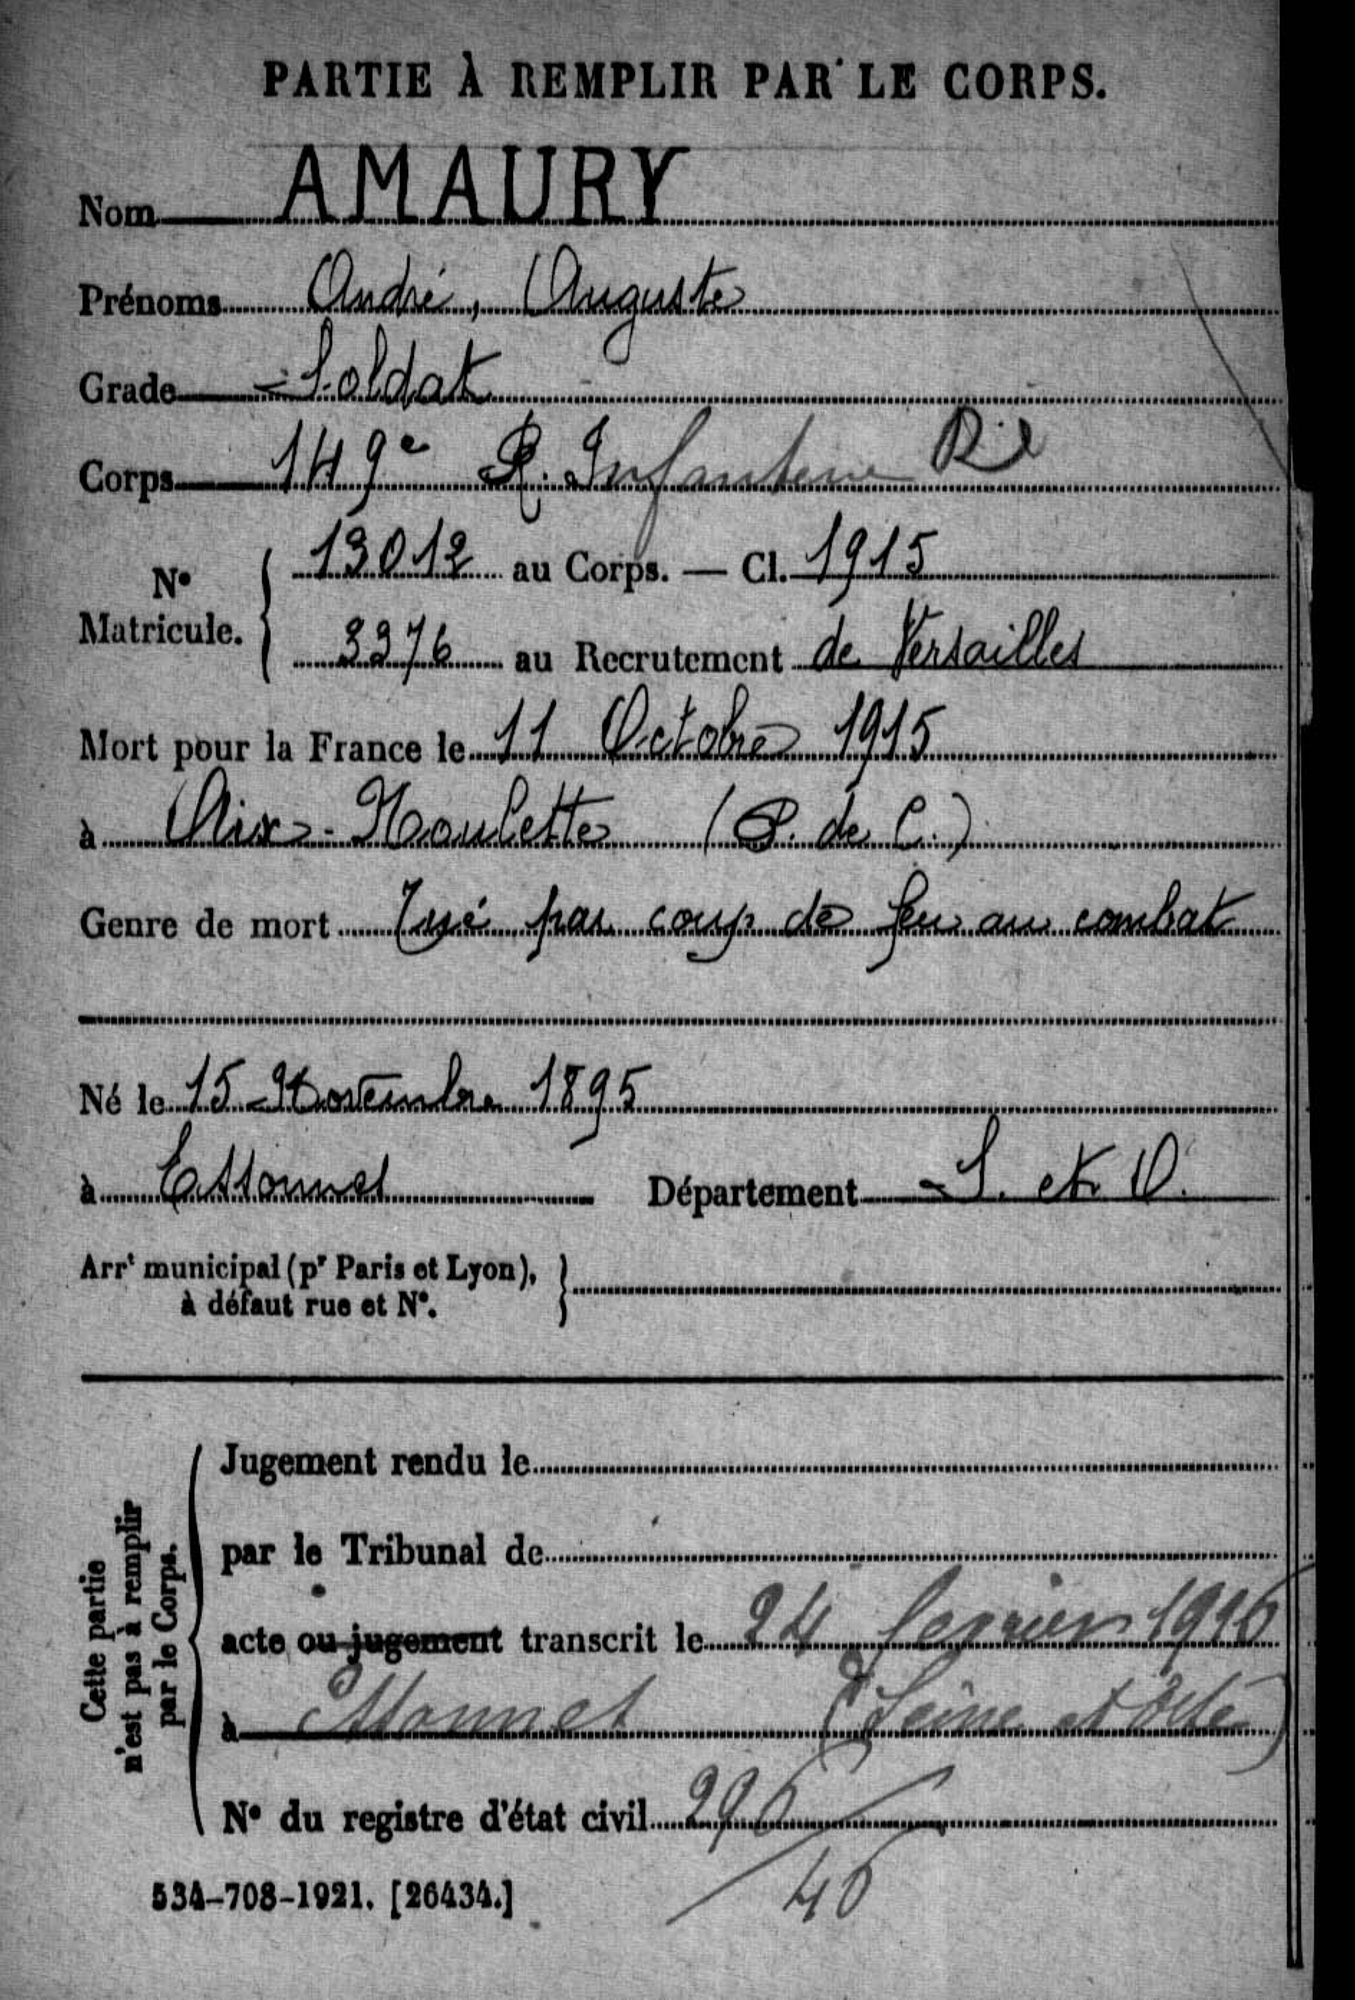 PARTIE À REMPLIR PAR LE CORPS.
Nom AMAURY
Prénoms André, Auguste
Grade Soldat
Corps 149e R. Infanterie
N° Matricule. 13012 au Corps. — Cl. 1915
3376 au Recrutement de Versailles
Mort pour la France le 11 Octobre 1915
à Aix-Noulette (P. de C.)
Genre de mort Tué par coup de feu au combat
Né le 15 Novembre 1895
à Essonnes Département S. et O.
Arrt municipal (pr Paris et Lyon),
à défaut rue et N°.
Cette partie
n'est pas à remplir
par le Corps.
Jugement rendu le
par le Tribunal de
acte ou jugement transcrit le 24 février 1916
à Essonnes (Seine et Oise)
N° du registre d'état civil 296/
/46
534-708-1921. [26434.]